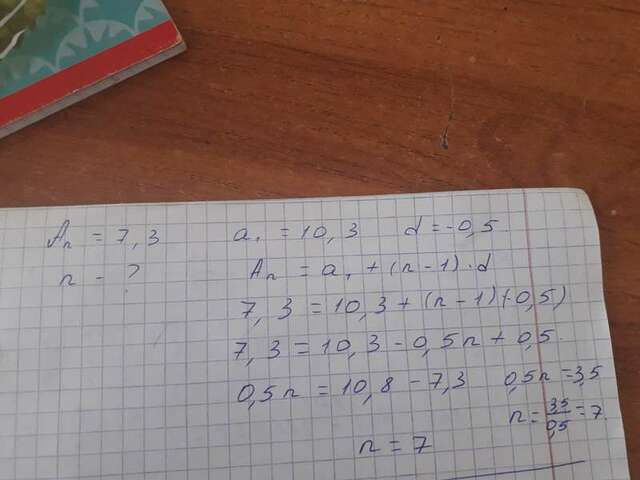 Aₙ = 7,3 a₁ = 10,3 d = -0,5.
n - ? Aₙ = a₁ + (n - 1) · d
7,3 = 10,3 + (n - 1)(-0,5)
7,3 = 10,3 - 0,5n + 0,5.
0,5n = 10,8 - 7,3 0,5n = 3,5
n = 3,5/0,5 = 7.
n = 7